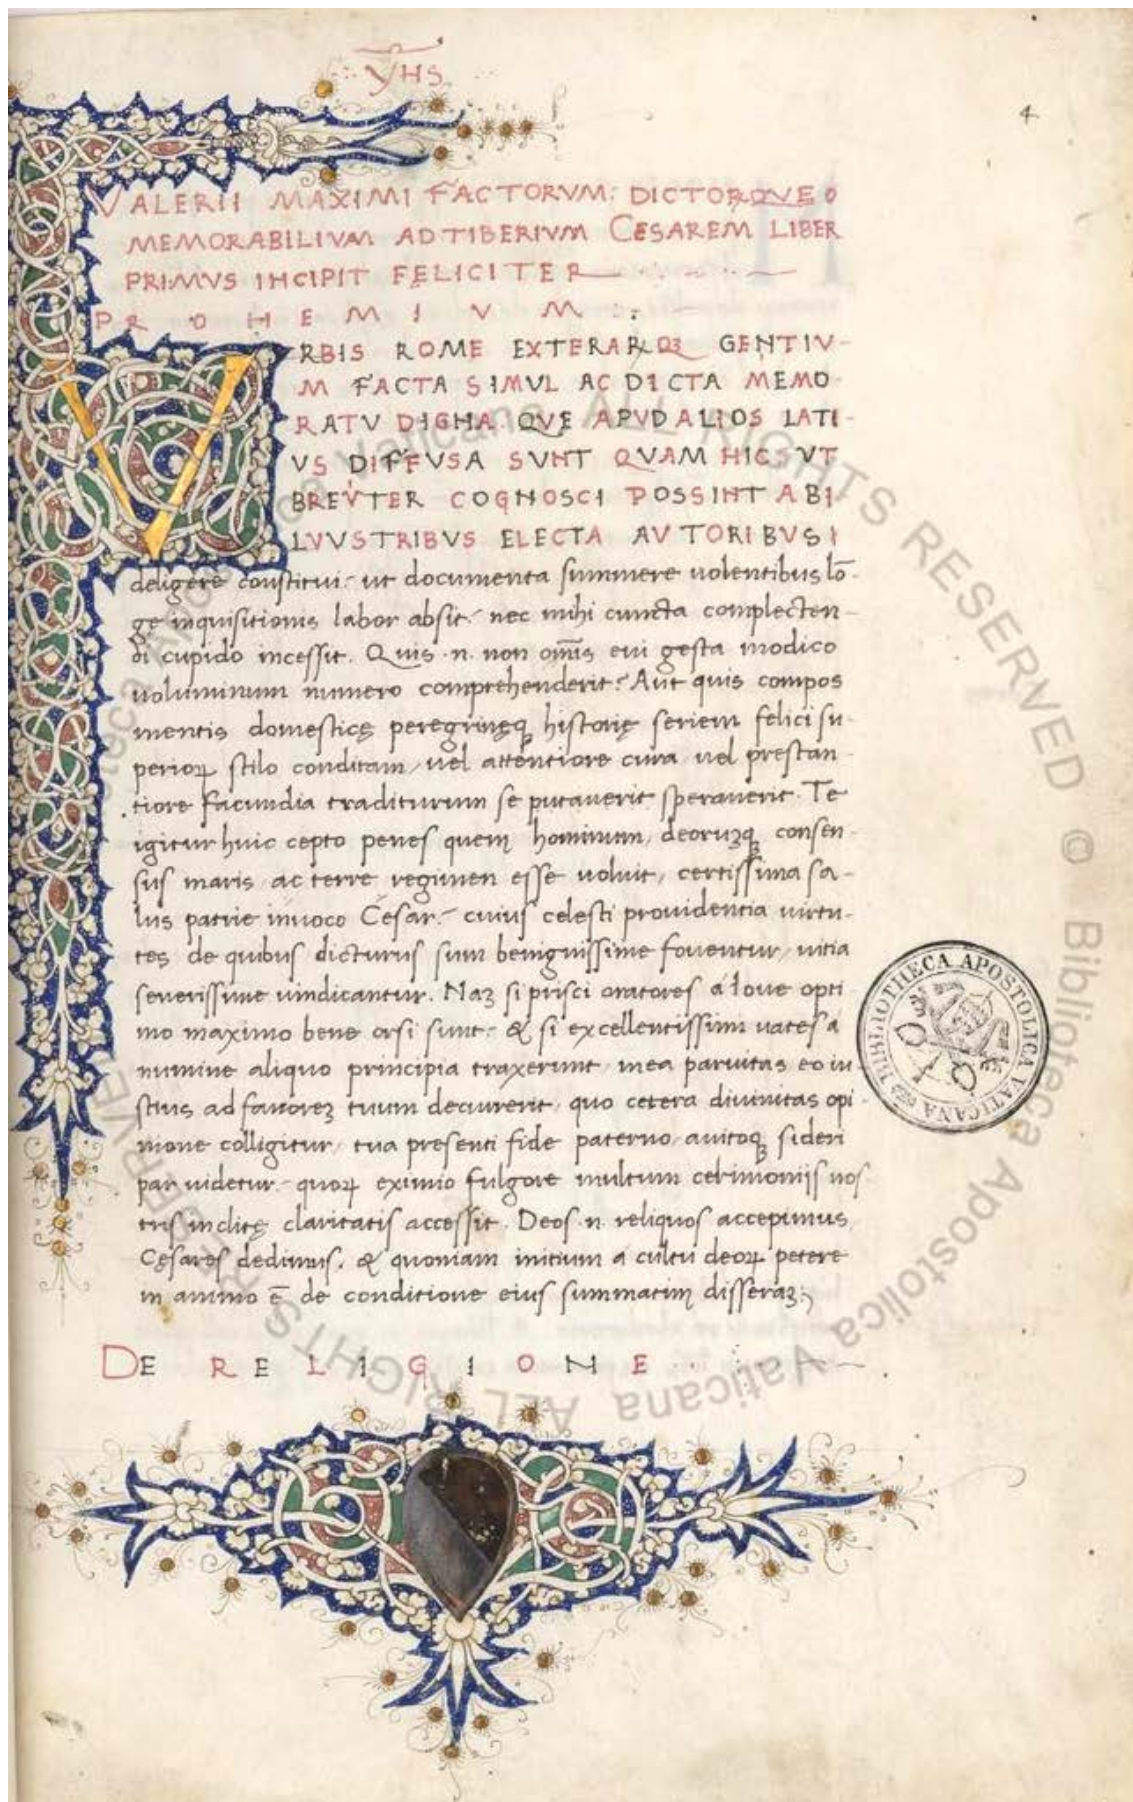 YHS
4
VALERII MAXIMI FACTORVM: DICTORQVE
MEMORABILIVM AD TIBERIVM CESAREM LIBER
PRIMVS INCIPIT FELICITER
PROHEMIVM
VRBIS ROME EXTERARQȝ GENTIV-
M FACTA SIMVL AC DICTA MEMO
RATV DIGNA QVE APVD ALIOS LATI-
VS DIFFVSA SVNT QVAM HIC SVT
BREVTER COGNOSCI POSSINT AB I
LVVSTRIBVS ELECTA AVTORIBVS
deligere constitui: ut documenta summere uolentibus lō-
ge inquisitionis labor absit: nec mihi cuncta complecten-
di cupido incessit. Quis .n. non om̄is eui gesta modico
uoluminum numero comprehenderit? Aut quis compos
mentis domesticę peregrinęqꝫ historię seriem felici su-
perioꝝ stilo conditam / uel attentiore cura / uel prestan-
tiore facundia traditurum se putauerit sperauerit. Te
igitur huic cepto penes quem hominum / deoruꝫqꝫ consen-
sus maris ac terre regimen esse uoluit / certissima sa-
lus patrie inuoco Cesar: cuius celesti prouidentia uirtu-
tes de quibus dicturus sum benignissime fouentur / uitia
seuerissime uindicantur. Naꝫ si prisci oratores á Ioue opti
mo maximo bene orsi sunt: & si excellentissimi uates á
numine aliquo principia traxerunt / mea paruitas eo iu-
stius ad fauoreꝫ tuum decurerit / quo cetera diuinitas opi-
nione colligitur / tua presenti fide paterno / auitoqꝫ sideri
par uidetur: quoꝝ eximio fulgore multum cerimoniis nos
tris inclitę claritatis accessit. Deos .n. reliquos accepimus,
Cęsares dedimus. & quoniam initium a cultu deoꝝ petere
in animo ē de conditione eius summatim disseraꝫ:
DE RELIGIONE
BIBLIOTHECA APOSTOLICA VATICANA
ALL RIGHTS RESERVED © Biblioteca Apostolica Vaticana